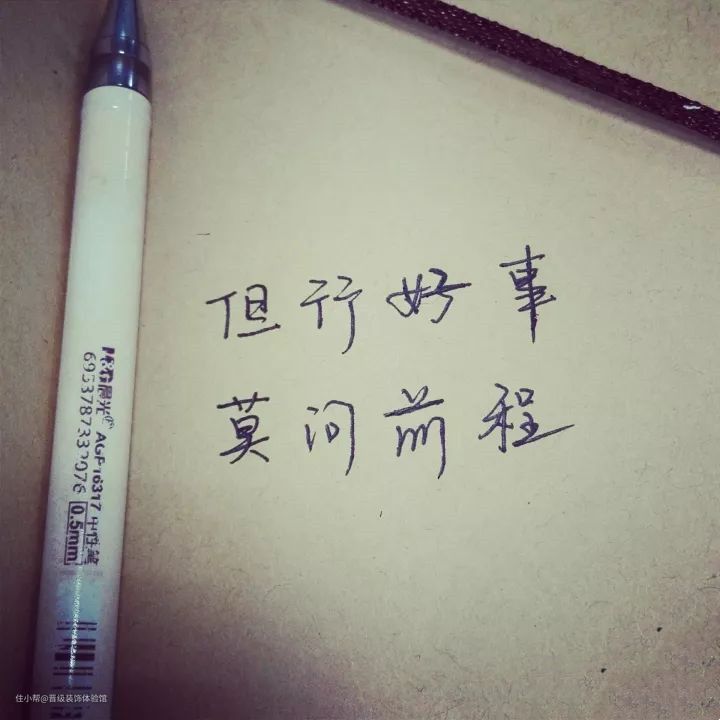 但行好事
莫问前程
M&G晨光 AGP16317 中性笔
0.5mm
住小帮@晋级装饰体验馆